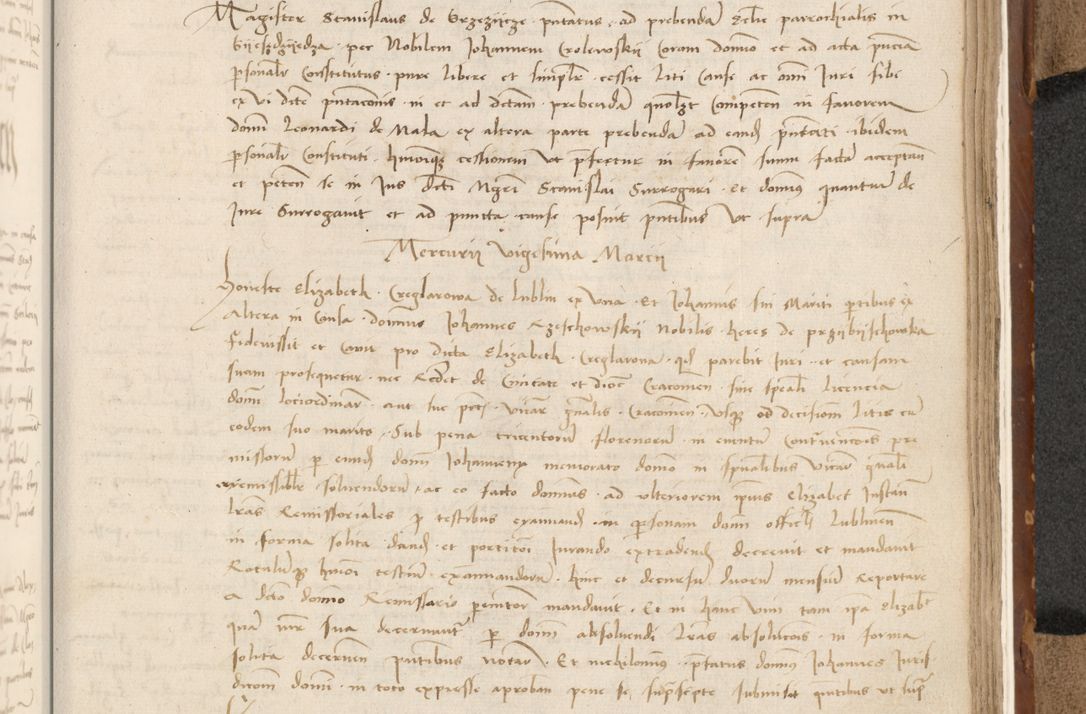 Magister Stanislaus de Grzezijcze pntatus ad prebendã Eclie parrochialis in
per Nobilem Johannem Crolewskij Coram domino et ad acta pñcia
psonalr Constitutus pure libere et simplr cessit liti Cause ac omni Juri sibi
ex vi dcte pntaconis in et ad dctam prebendã quolzt Competen in favorem
domi Leonardi de Mala ex altera parte prebendã ad eand pntati ibidem
psonalr Constituti hmoique cessionem ut pfertur in favorẽ suum factã acceptan
et peten se in Jus dcti Mgri Stanislai Surrogari Et domins quantum de
Jure Surrogavit et ad puncta cause posuit pntibus ut supra
Mercurij vigesima Marcij
Honeste Elizabeth Creglarowa de lublin ex una Et Johannis sui Mariti ptibus ex
Altera in Causa dominus Johannes Rzeschowskij Nobilis heres de Przijbijschowka
Fideiussit et Cavit pro dicta Elizabeth Creglarova qd parebit Juri et causam
suam prosequetur nec Recedet de Civitate et dioc Cracovien sine spciali licencia
domi lociordinarij aut sue pctis Vicarij gnalis Cracovien Usque ad decisionem litis cũ
eodem suo marito Sub pena tricentorũ florenorũ in eventũ Contravencois pre
missorũ p eund domi Johannem memorato domino in spualibus Vicario gnali
irremissiblr solvendorũ ac eo facto dominus ad ulteriorem ipius Elizabet Instan
lras Remissoriales p testibus examinand in personam domi officlis lublinen
in forma solita dand et portitori Jurando extradend decrevit et mandavit
Rotulũque hmoi testiũ examinandorũ hinc et decursũ duorũ mensiũ Reportare
a dcto domino Remissario mandavit Et in hanc vim tam ipa Elizabt
quã sua decernavit p domi absolvendi lras absolucois in forma
solita decernen pntibus notarij Et nichilominus pfatus dominus Johannes Juris
dicom domi in toto expresse aproban pene se suprascripte submisit pntibus ut supr